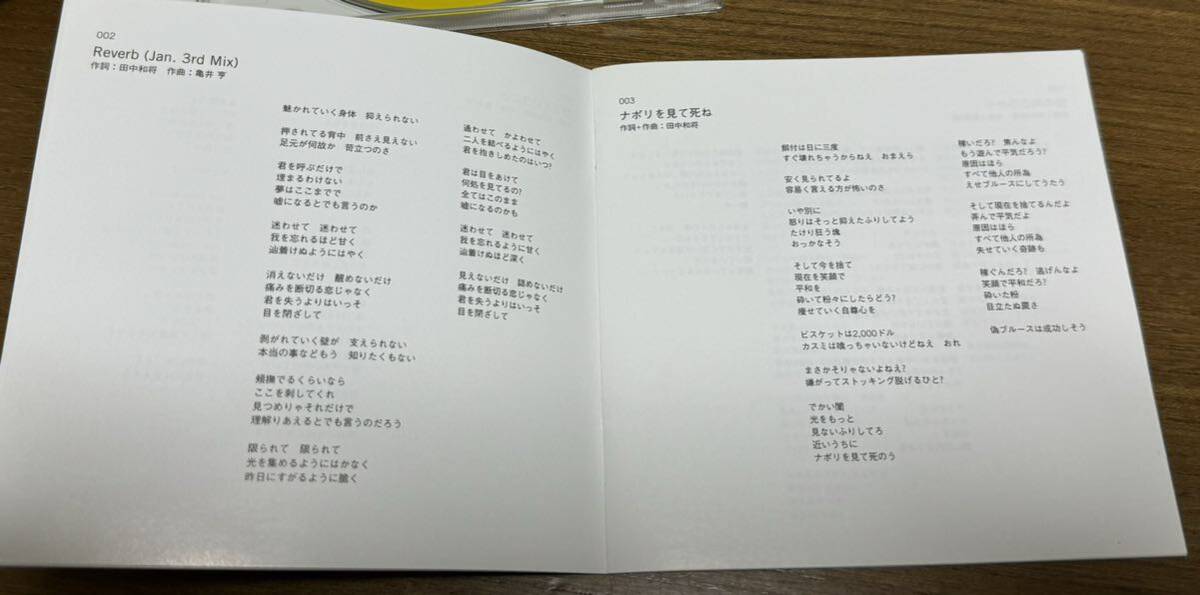 002
Reverb (Jan. 3rd Mix)
作詞：田中和将　作曲：亀井 亨
魅かれていく身体　抑えられない
押されてる背中　前さえ見えない
足元が何故か　苛立つのさ
君を呼ぶだけで
埋まるわけない
夢はここまでで
嘘になるとでも言うのか
迷わせて　迷わせて
我を忘れるほど甘く
辿着けぬようにはやく
消えないだけ　醒めないだけ
痛みを断切る恋じゃなく
君を失うよりはいっそ
目を閉ざして
剥がれていく壁が　支えられない
本当の事などもう　知りたくもない
頬撫でるくらいなら
ここを刺してくれ
見つめりゃそれだけで
理解りあえるとでも言うのだろう
限られて　限られて
光を集めるようにはかなく
昨日にすがるように脆く
通わせて　かよわせて
二人を結べるようにはやく
君を抱きしめたのはいつ?
君は目をあけて
何処を見てるの?
全てはこのまま
嘘になるのかも
迷わせて　迷わせて
我を忘れるように甘く
辿着けぬほど深く
見えないだけ　認めないだけ
痛みを断切る恋じゃなく
君を失うよりはいっそ
目を閉ざして
003
ナポリを見て死ね
作詞+作曲：田中和将
餌付は日に三度
すぐ壊れちゃうからねえ　おまえら
安く見られてるよ
容易く言える方が怖いのさ
いや別に
怒りはそっと抑えたふりしてよう
たけり狂う塊
おっかなそう
そして今を捨て
現在を笑顔で
平和を
砕いて粉々にしたらどう?
痩せていく自尊心を
ビスケットは2,000ドル
カスミは喰っちゃいないけどねえ　おれ
まさかそりゃないよねえ?
嫌がってストッキング脱げるひと?
でかい闇
光をもっと
見ないふりしてろ
近いうちに
ナポリを見て死のう
稼いだろ?　焦んなよ
もう遊んで平気だろう?
原因はほら
すべて他人の所為
えせブルースにしてうたう
そして現在を捨てるんだよ
弄んで平気だよ
原因はほら
すべて他人の所為
失せていく奇跡も
稼ぐんだろ?　逃げんなよ
笑顔で平和だろ?
砕いた粉
目立たぬ震さ
偽ブルースは成功しそう